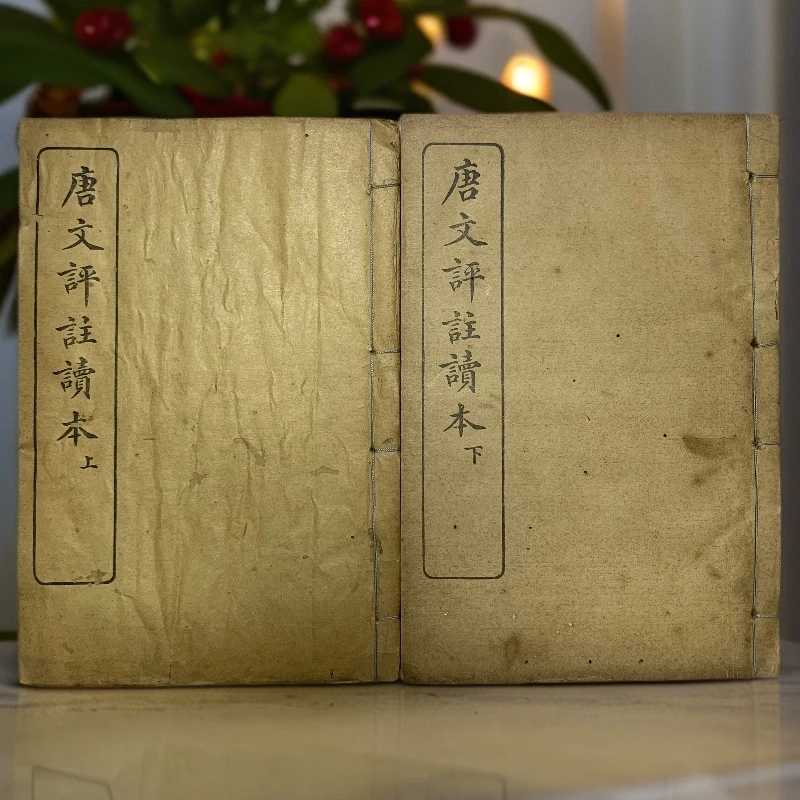 唐文評註讀本上
唐文評註讀本下